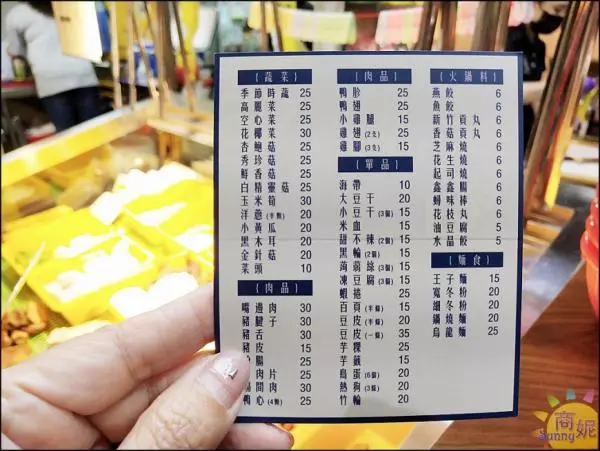 {蔬菜}
季節時蔬 25
高麗菜 25
空心菜 25
花椰菜 30
杏鮑菇 25
秀珍菇 25
鮮香菇 25
白精靈菇 25
玉米筍 30
洋蔥(半顆) 20
小黃瓜 20
黑木耳 20
金針菇 20
菜頭 10
{肉品}
嘴邊肉 30
豬腱子 30
豬舌 30
豬皮 15
腸 25
肉片 25
間肉 30
鴨心(4顆) 25
{肉品}
鴨胗 25
鴨翅 25
小雞腿 15
雞翅(2支) 25
雞腳(3支) 15
{單品}
海帶 10
大豆干 20
小豆干(3個) 15
米血 15
甜不辣(2個) 15
黑輪(2個) 15
蒟蒻絲(3個) 15
凍豆腐(3個) 15
蝦捲 25
百頁(半條) 15
豆皮(半條) 20
豆皮(一條) 35
芋粿 25
芋籤 15
鳥蛋(6個) 20
熱狗(3條) 20
竹輪 20
{火鍋料}
燕餃 6
魚餃 6
新竹貢丸 6
香菇貢丸 6
芝麻燒 6
花生燒 6
起司燒 6
鑫鑫腸 6
蟳味棒 6
花枝丸 6
油豆腐 5
水晶餃 5
{麵食}
王子麵 15
寬冬粉 20
細冬粉 20
鍋燒麵 20
烏龍麵 25
商妮
Sunny